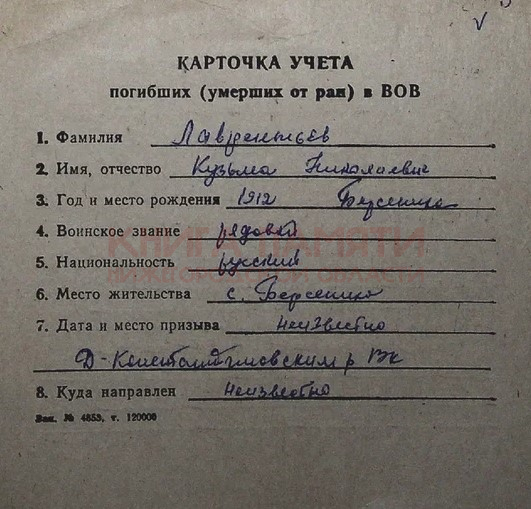 КАРТОЧКА УЧЕТА
погибших (умерших от ран) в ВОВ
1. Фамилия Лаврентьев
2. Имя, отчество Кузьма Николаевич
3. Год и место рождения 1912 Берсениха
4. Воинское звание рядовой
КНИГА ПАМЯТИ
НИЖЕГОРОДСКОЙ ОБЛАСТИ
5. Национальность русский
6. Место жительства с. Берсениха
7. Дата и место призыва неизвестно
Д-Константиновским р ВК
8. Куда направлен неизвестно
Зак. № 4853, т. 120000